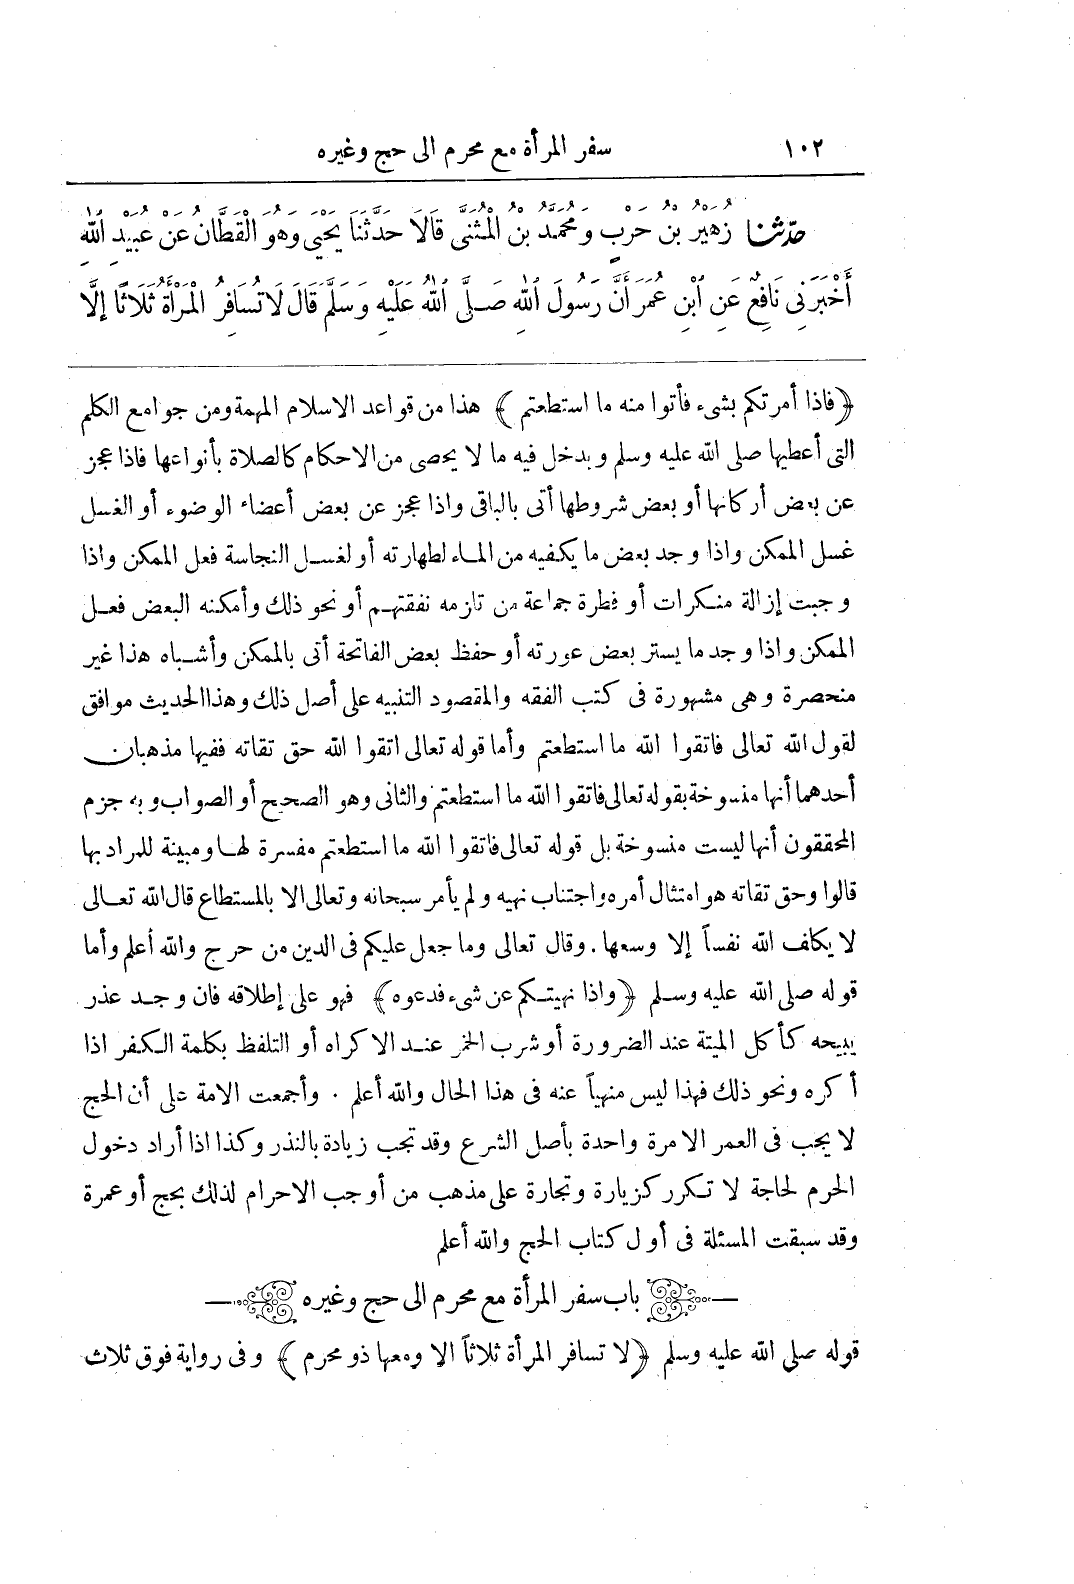 ١٠٢ سفر المرأة مع محرم الى حج وغيره
حدّثنا زُهَيْرُ بْنُ حَرْبٍ وَمُحَمَّدُ بْنُ الْمُثَنَّى قَالَا حَدَّثَنَا يَحْيَى وَهُوَ الْقَطَّانُ عَنْ عُبَيْدِ اللهِ
أَخْبَرَنِى نَافِعٌ عَنِ ابْنِ عُمَرَ أَنَّ رَسُولَ اللهِ صَلَّى اللهُ عَلَيْهِ وَسَلَّمَ قَالَ لَا تُسَافِرُ الْمَرْأَةُ ثَلَاثًا إِلَّا
﴿فاذا أمرتكم بشىء فأتوا منه ما استطعتم﴾ هذا من قواعد الاسلام المهمة ومن جوامع الكلم
التى أعطيها صلى الله عليه وسلم ويدخل فيه ما لا يحصى من الاحكام كالصلاة بأنواعها فاذا عجز
عن بعض أركانها أو بعض شروطها أتى بالباقى واذا عجز عن بعض أعضاء الوضوء أو الغسل
غسل الممكن واذا وجد بعض ما يكفيه من الماء لطهارته أو لغسل النجاسة فعل الممكن واذا
وجبت إزالة منكرات أو فطرة جماعة من تلزمه نفقتهم أو نحو ذلك وأمكنه البعض فعل
الممكن واذا وجد ما يستر بعض عورته أو حفظ بعض الفاتحة أتى بالممكن وأشباه هذا غير
منحصرة وهى مشهورة فى كتب الفقه والمقصود التنبيه على أصل ذلك وهذا الحديث موافق
لقول الله تعالى فاتقوا الله ما استطعتم وأما قوله تعالى اتقوا الله حق تقاته ففيها مذهبان
أحدهما أنها منسوخة بقوله تعالى فاتقوا الله ما استطعتم والثانى وهو الصحيح أو الصواب وبه جزم
المحققون أنها ليست منسوخة بل قوله تعالى فاتقوا الله ما استطعتم مفسرة لها ومبينة للمراد بها
قالوا وحق تقاته هو امتثال أمره واجتناب نهيه ولم يأمر سبحانه وتعالى الا بالمستطاع قال الله تعالى
لا يكلف الله نفساً إلا وسعها. وقال تعالى وما جعل عليكم فى الدين من حرج والله أعلم وأما
قوله صلى الله عليه وسلم ﴿واذا نهيتكم عن شىء فدعوه﴾ فهو على إطلاقه فان وجد عذر
يبيحه كأكل الميتة عند الضرورة أو شرب الخمر عند الاكراه أو التلفظ بكلمة الكفر اذا
أكره ونحو ذلك فهذا ليس منهياً عنه فى هذا الحال والله أعلم . وأجمعت الامة على أن الحج
لا يجب فى العمر الا مرة واحدة بأصل الشرع وقد تجب زيادة بالنذر وكذا اذا أراد دخول
الحرم لحاجة لا تكرر كزيارة وتجارة على مذهب من أوجب الاحرام لذلك بحج أو عمرة
وقد سبقت المسئلة فى أول كتاب الحج والله أعلم
باب سفر المرأة مع محرم الى حج وغيره
قوله صلى الله عليه وسلم ﴿لا تسافر المرأة ثلاثاً الا ومعها ذو محرم﴾ وفى رواية فوق ثلاث